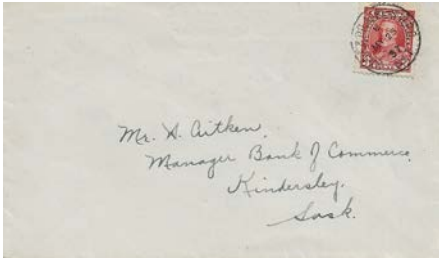 Mr. A. Aitken,
Manager Bank of Commerce,
Kindersley.
Sask.